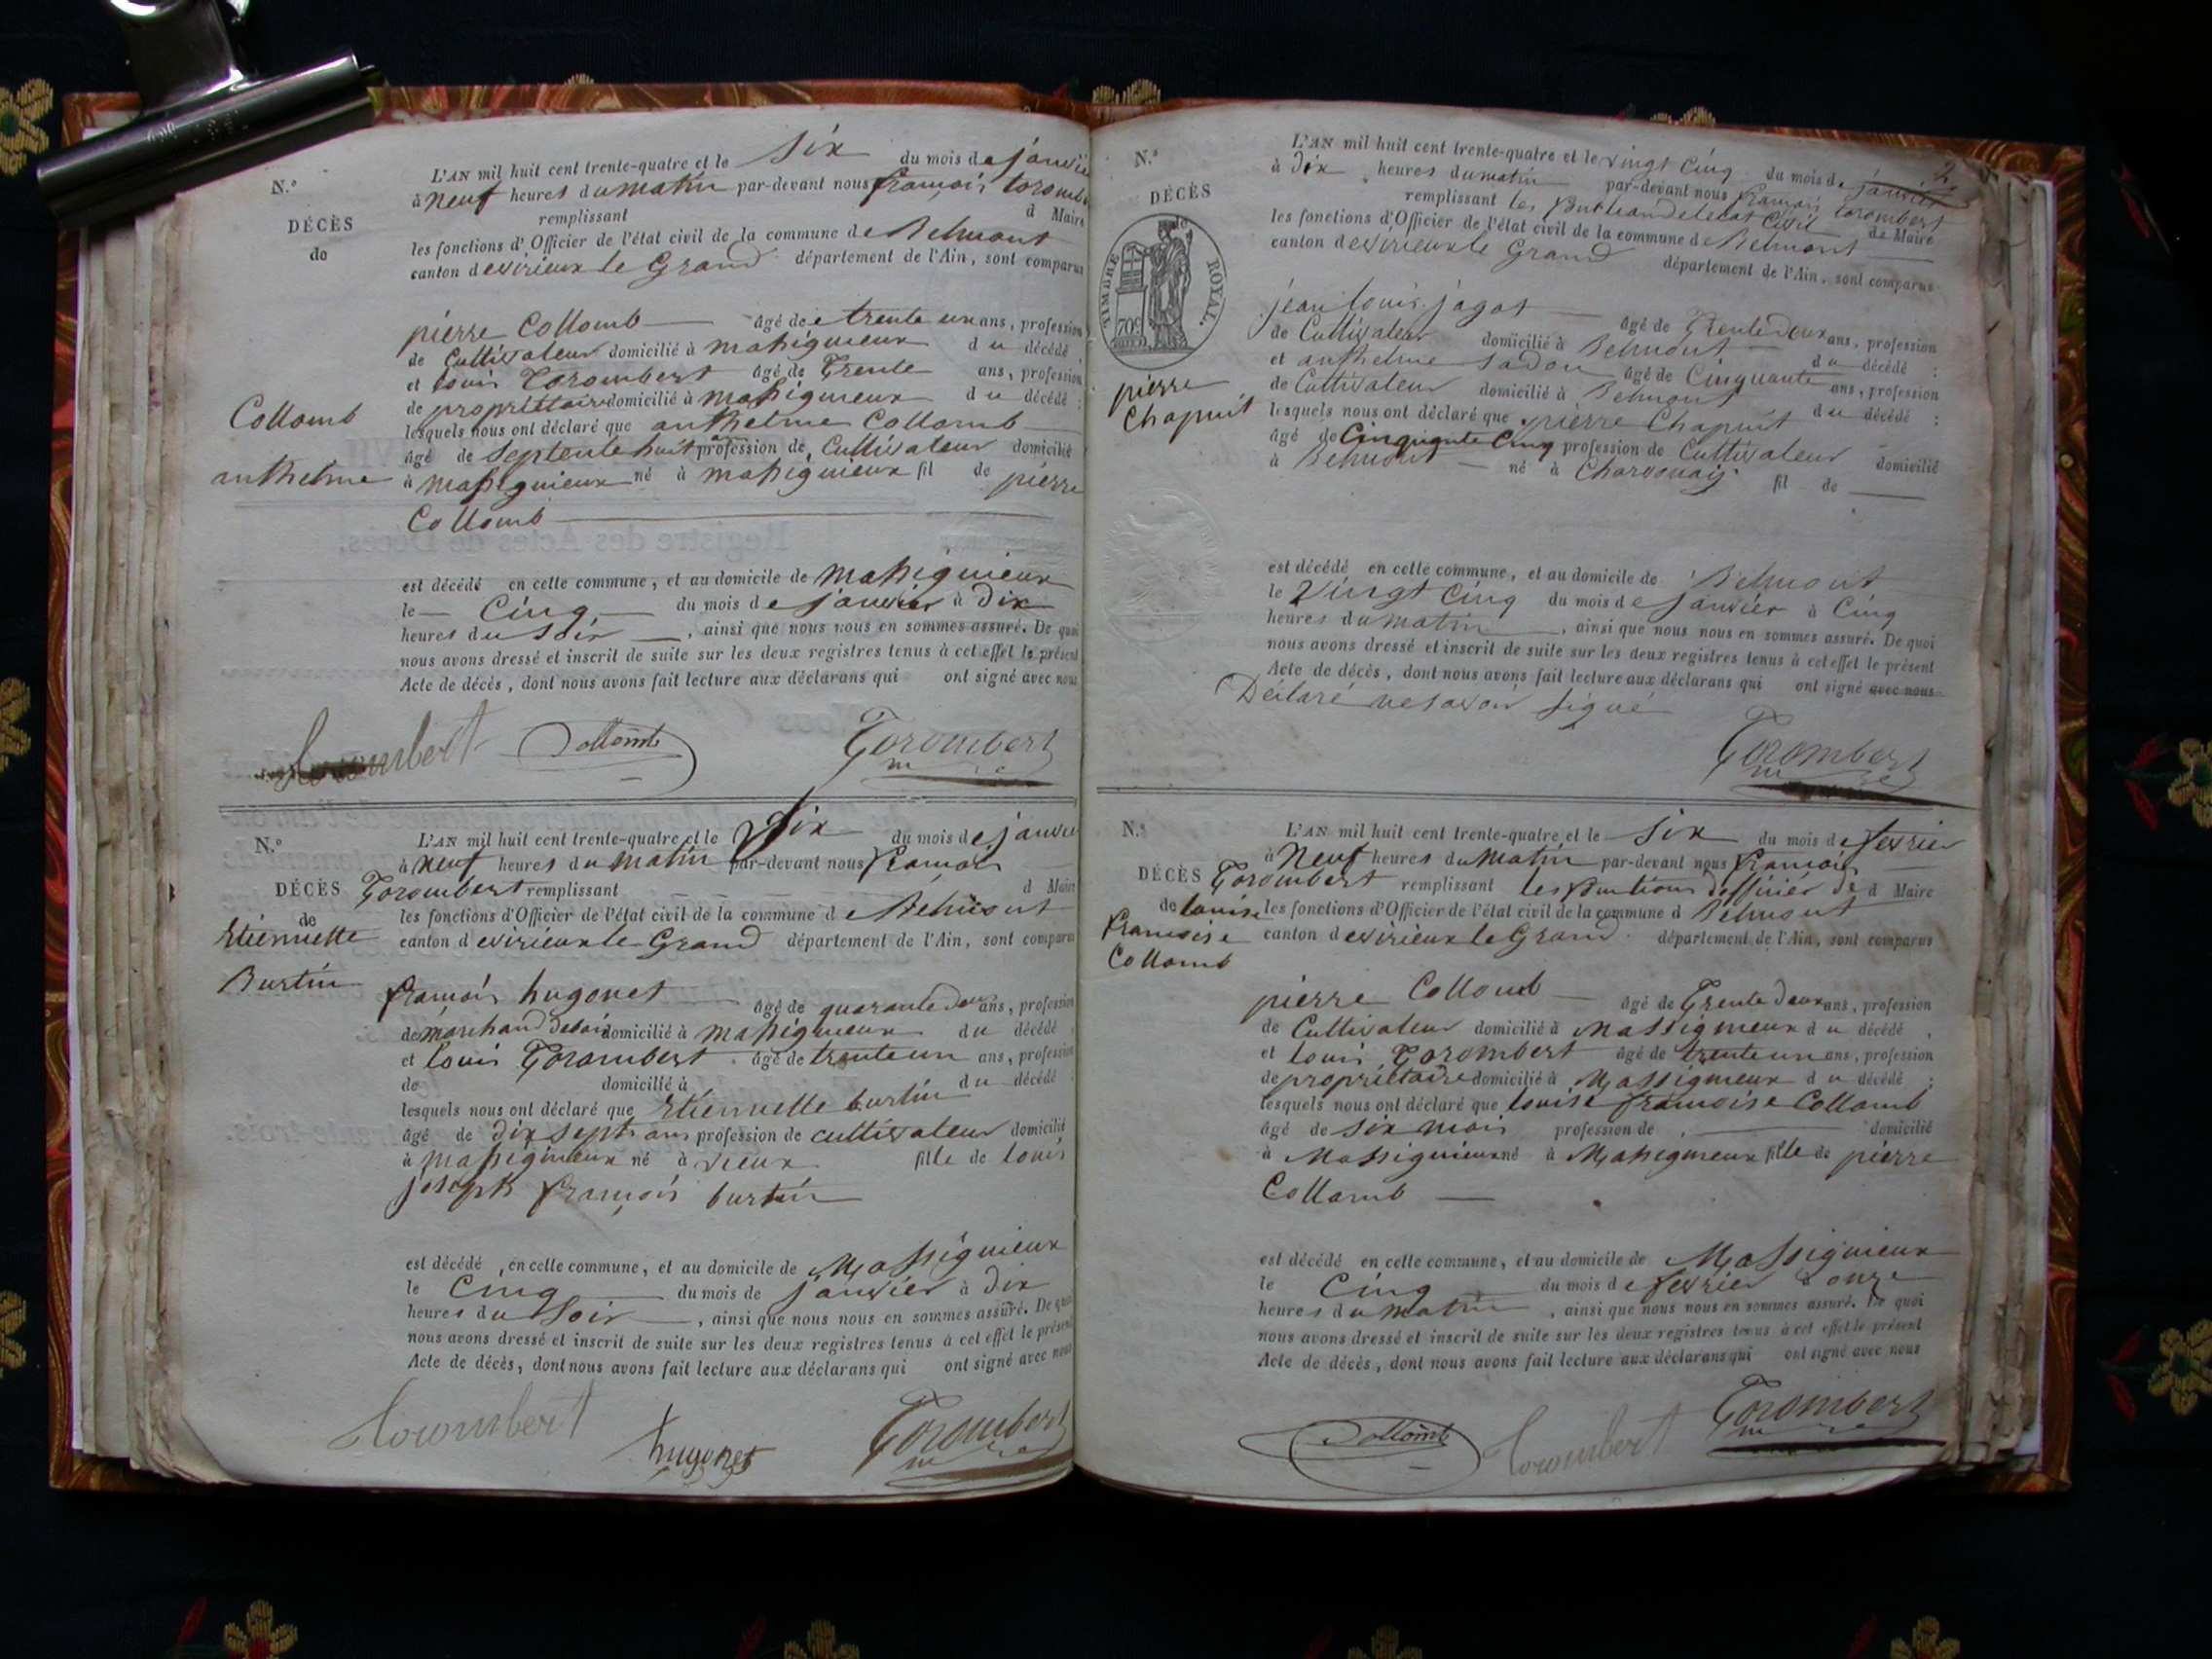 N.º
L'AN mil huit cent trente-quatre et le Six du mois de janvie
à Neuf heures du matin par-devant nous françois torombe
DÉCÈS
remplissant d Maire
de
les fonctions d'Officier de l'état civil de la commune de Belmont
canton de virieux le Grand département de l'Ain, sont comparus
pierre Collomb âgé de trente un ans, profession
de Cultivateur domicilié à massignieux du décédé,
et louis Torombert âgé de Trente ans, profession
de propriétaire domicilié à massignieux du décédé :
Collomb
lesquels nous ont déclaré que anthelme Collomb
âgé de septente huit profession de Cultivateur domicilié
anthelme
à massignieux né à massignieux fil de pierre
Collomb
est décédé en cette commune, et au domicile de massignieux
le Cinq du mois de janvier à Dix
heures du Soir, ainsi que nous nous en sommes assuré. De quoi
nous avons dressé et inscrit de suite sur les deux registres tenus à cet effet le présent
Acte de décès, dont nous avons fait lecture aux déclarans qui ont signé avec nous
Torombert Collomb Torombert
N.º
L'AN mil huit cent trente-quatre et le Six du mois de janvie
à Neuf heures du matin par-devant nous françois
DÉCÈS
Torombert remplissant d Maire
de
les fonctions d'Officier de l'état civil de la commune de Belmont
Etiennette
canton de virieux le Grand département de l'Ain, sont comparus
Burtin
françois hugonet âgé de quarante deux ans, profession
de marchand debois domicilié à massignieux du décédé,
et louis Torombert âgé de trente un ans, profession
de domicilié à du décédé
lesquels nous ont déclaré que Etiennette burtin
âgé de dix sept ans profession de cultivateur domicilié
à massignieux né à vieux fille de louis
joseph françois burtin
est décédé, en cette commune, et au domicile de Massignieux
le Cinq du mois de janvier à dix
heures du Soir, ainsi que nous nous en sommes assuré. De quoi
nous avons dressé et inscrit de suite sur les deux registres tenus à cet effet le présent
Acte de décès, dont nous avons fait lecture aux déclarans qui ont signé avec nous
Torombert hugonet Torombert
2
N.º
L'AN mil huit cent trente-quatre et le vingt Cinq du mois de janvier
à Dix heures du matin par-devant nous françois torombert
DÉCÈS
remplissant les civil de Maire
les fonctions d'Officier de l'état civil de la commune de Belmont
canton de virieux le Grand département de l'Ain, sont comparus
TIMBRE ROYAL.
70c
jean louis jagot âgé de Trente deux ans, profession
de Cultivateur domicilié à Belmont du décédé :
et anthelme âgé de Cinquante ans, profession
pierre
de Cultivateur domicilié à Belmont du décédé :
Chapuit
lesquels nous ont déclaré que pierre Chapuit
âgé de Cinquante Cinq profession de Cultivateur domicilié
à Belmont né à fil de
est décédé en cette commune, et au domicile de Belmont
le Vingt Cinq du mois de janvier à Cinq
heures du matin, ainsi que nous nous en sommes assuré. De quoi
nous avons dressé et inscrit de suite sur les deux registres tenus à cet effet le présent
Acte de décès, dont nous avons fait lecture aux déclarans qui ont signé avec nous
Déclaré ne savoir signé
Torombert
N.º
L'AN mil huit cent trente-quatre et le Six du mois de fevrier
à Neuf heures du Matin par-devant nous françois
DÉCÈS
Torombert remplissant les fonctions d'officier de d Maire
de louise
les fonctions d'Officier de l'état civil de la commune d Belmont
françoise
canton de virieux le Grand département de l'Ain, sont comparus
Collomb
pierre Collomb âgé de Trente deux ans, profession
de Cultivateur domicilié à Massignieux du décédé,
et louis Torombert âgé de trente un ans, profession
de propriétaire domicilié à Massignieux du décédé :
lesquels nous ont déclaré que louise françoise Collomb
âgé de six mois profession de domicilié
à Massignieux né à Massignieux fille de pierre
Collomb
est décédé en cette commune, et au domicile de Massignieux
le Cinq du mois de fevrier à onze
heures du matin, ainsi que nous nous en sommes assuré. De quoi
nous avons dressé et inscrit de suite sur les deux registres tenus à cet effet le présent
Acte de décès, dont nous avons fait lecture aux déclarans qui ont signé avec nous
Collomb Torombert Torombert